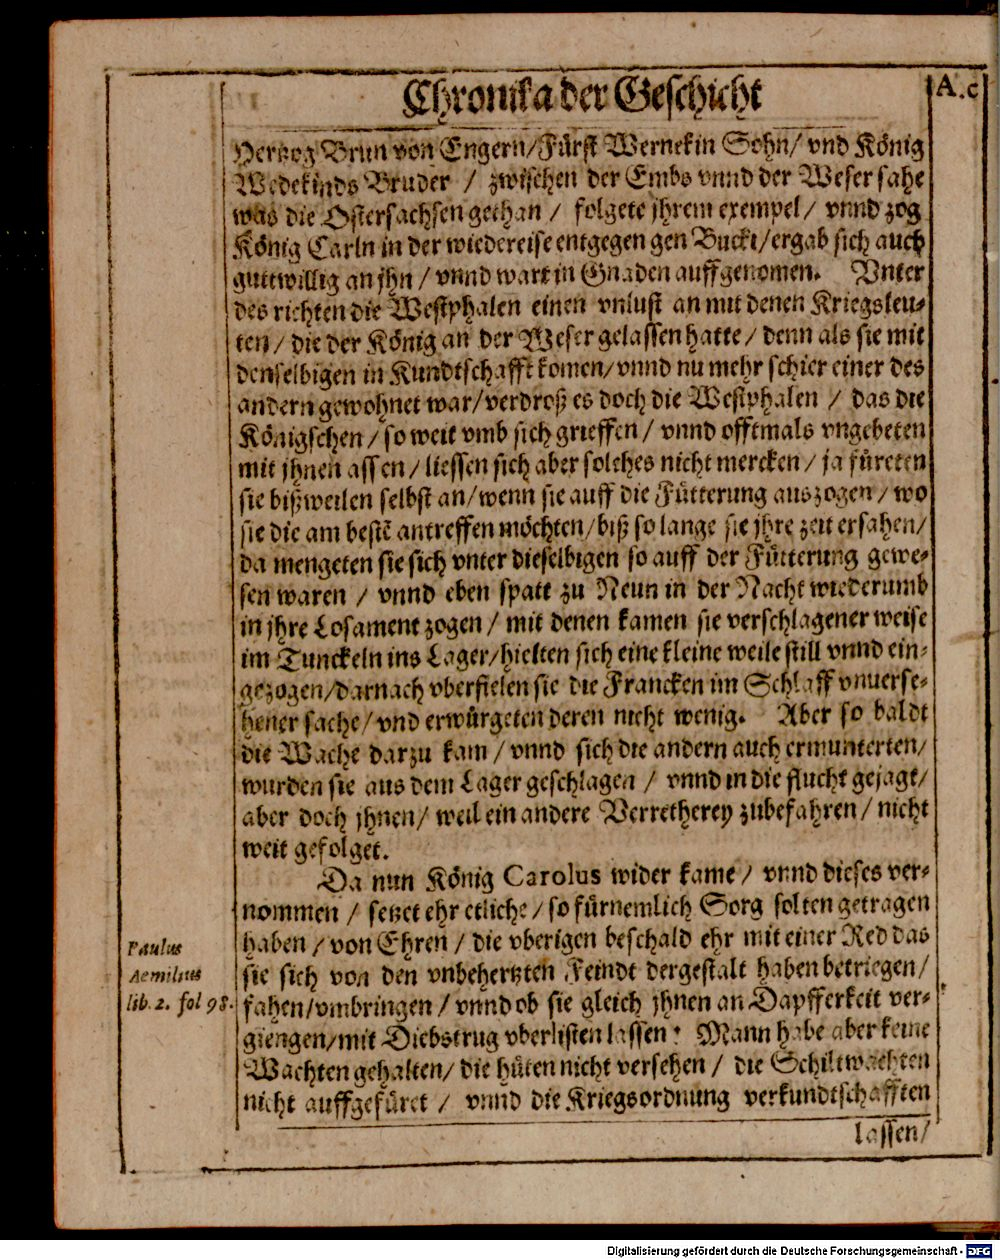 Chronika der Geschicht
A.c
Hertzog Brun von Engern/Fürst Wernekin Sohn/ vnd König
Wedekinds Bruder / zwischen der Embs vnnd der Weser sahe
was die Ostersachsen gethan / folgete jhrem exempel/ vnnd zog
König Carln in der wiedereise entgegen gen Bucki/ergab sich auch
guttwillig an jhn / vnnd wart in Gnaden auffgenomen. Vnter
des richten die Westphalen einen vnlust an mit denen Kriegsleu-
ten/ die der König an der Weser gelassen hatte/ denn als sie mit
denselbigen in Kundtschafft komen/ vnnd nu mehr schier einer des
andern gewohnet war/verdroß es doch die Westphalen / das die
Königschen/ so weit vmb sich grieffen/ vnnd offtmals vngebeten
mit jhnen assen/ liessen sich aber solches nicht mercken/ ja füreten
sie bißweilen selbst an/wenn sie auff die Fütterung auszogen/ wo
sie die am bestē antreffen möchten/biß so lange sie jhre zeit ersahen/
da mengeten sie sich vnter dieselbigen so auff der Fütterung gewe-
sen waren / vnnd eben spatt zu Neun in der Nacht wiederumb
in jhre Losament zogen/ mit denen kamen sie verschlagener weise
im Tunckeln ins Lager/hielten sich eine kleine weile still vnnd ein-
gezogen/darnach vberfielen sie die Francken im Schlaff vnuerse-
hener sache/ vnd erwürgeten deren nicht wenig. Aber so baldt
die Wache darzu kam/ vnnd sich die andern auch ermunterten/
wurden sie aus dem Lager geschlagen / vnnd in die flucht gejagt/
aber doch jhnen/ weil ein andere Verretherey zubefahren/ nicht
weit gefolget.
Da nun König Carolus wider kame/ vnnd dieses ver-
nommen / setzet ehr etliche/ so fürnemlich Sorg solten getragen
haben/ von Ehren/ die vberigen beschald ehr mit einer Red das
sie sich von den vnbehertzten Feindt dergestalt haben betriegen/
fahen/vmbringen/ vnnd ob sie gleich jhnen an Dapfferkeit ver-
giengen/mit Diebstrug vberlisten lassen: Mann habe aber keine
Wachten gehalten/ die hüten nicht versehen/ die Schiltwachten
nicht auffgefüret / vnnd die Kriegsordnung verkundtschafften
lassen/
Paulus
Aemilius
lib. 2. fol 98.
Digitalisierung gefördert durch die Deutsche Forschungsgemeinschaft - DFG